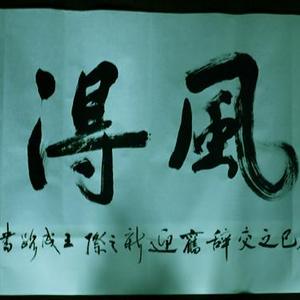 風得
巳之交辞舊迎新之際王成路書